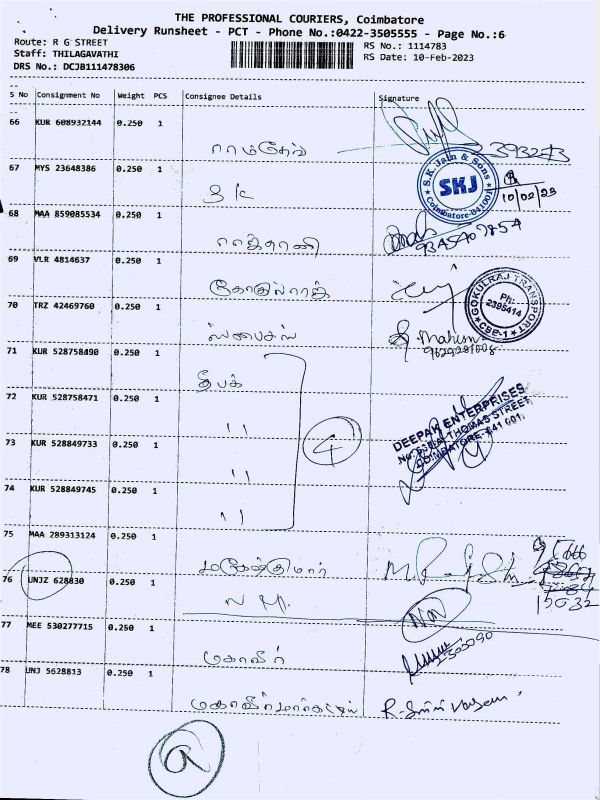 THE PROFESSIONAL COURIERS, Coimbatore
Delivery Runsheet - PCT - Phone No.:0422-3505555 - Page No.:6
Route: R G STREET
RS No.: 1114783
Staff: THILAGAVATHI
RS Date: 10-Feb-2023
DRS No.: DCJB111478306
S No Consignment No Weight PCS Consignee Details Signature
66 KUR 608932144 0.250 1
ராம்தேவ்
67 MYS 23648386 0.250 1
S K
S.K. Jain & Sons
SKJ
Coimbatore-641001
10/02/23
68 MAA 859085534 0.250 1
ராஜ்தானி
9345407854
69 VLR 4814637 0.250 1
கோகுல்ராஜ்
GOKULRAJ TRANSPORT
Ph:
2395414
CBE-1
70 TRZ 42469760 0.250 1
ஸ்பைசஸ்
Mahesh
71 KUR 528758490 0.250 1
தீபக்
72 KUR 528758471 0.250 1
11
4
DEEPAK ENTERPRISES
THOMAS STREET,
COIMBATORE-641 001.
73 KUR 528849733 0.250 1
11
74 KUR 528849745 0.250 1
11
75 MAA 289313124 0.250 1
மகேந்குமார்
76 UNJZ 628830 0.250 1
N M.
NM
77 MEE 530277715 0.250 1
மகாவீர்
78 UNJ 5628813 0.250 1
R-Srinivasan
a